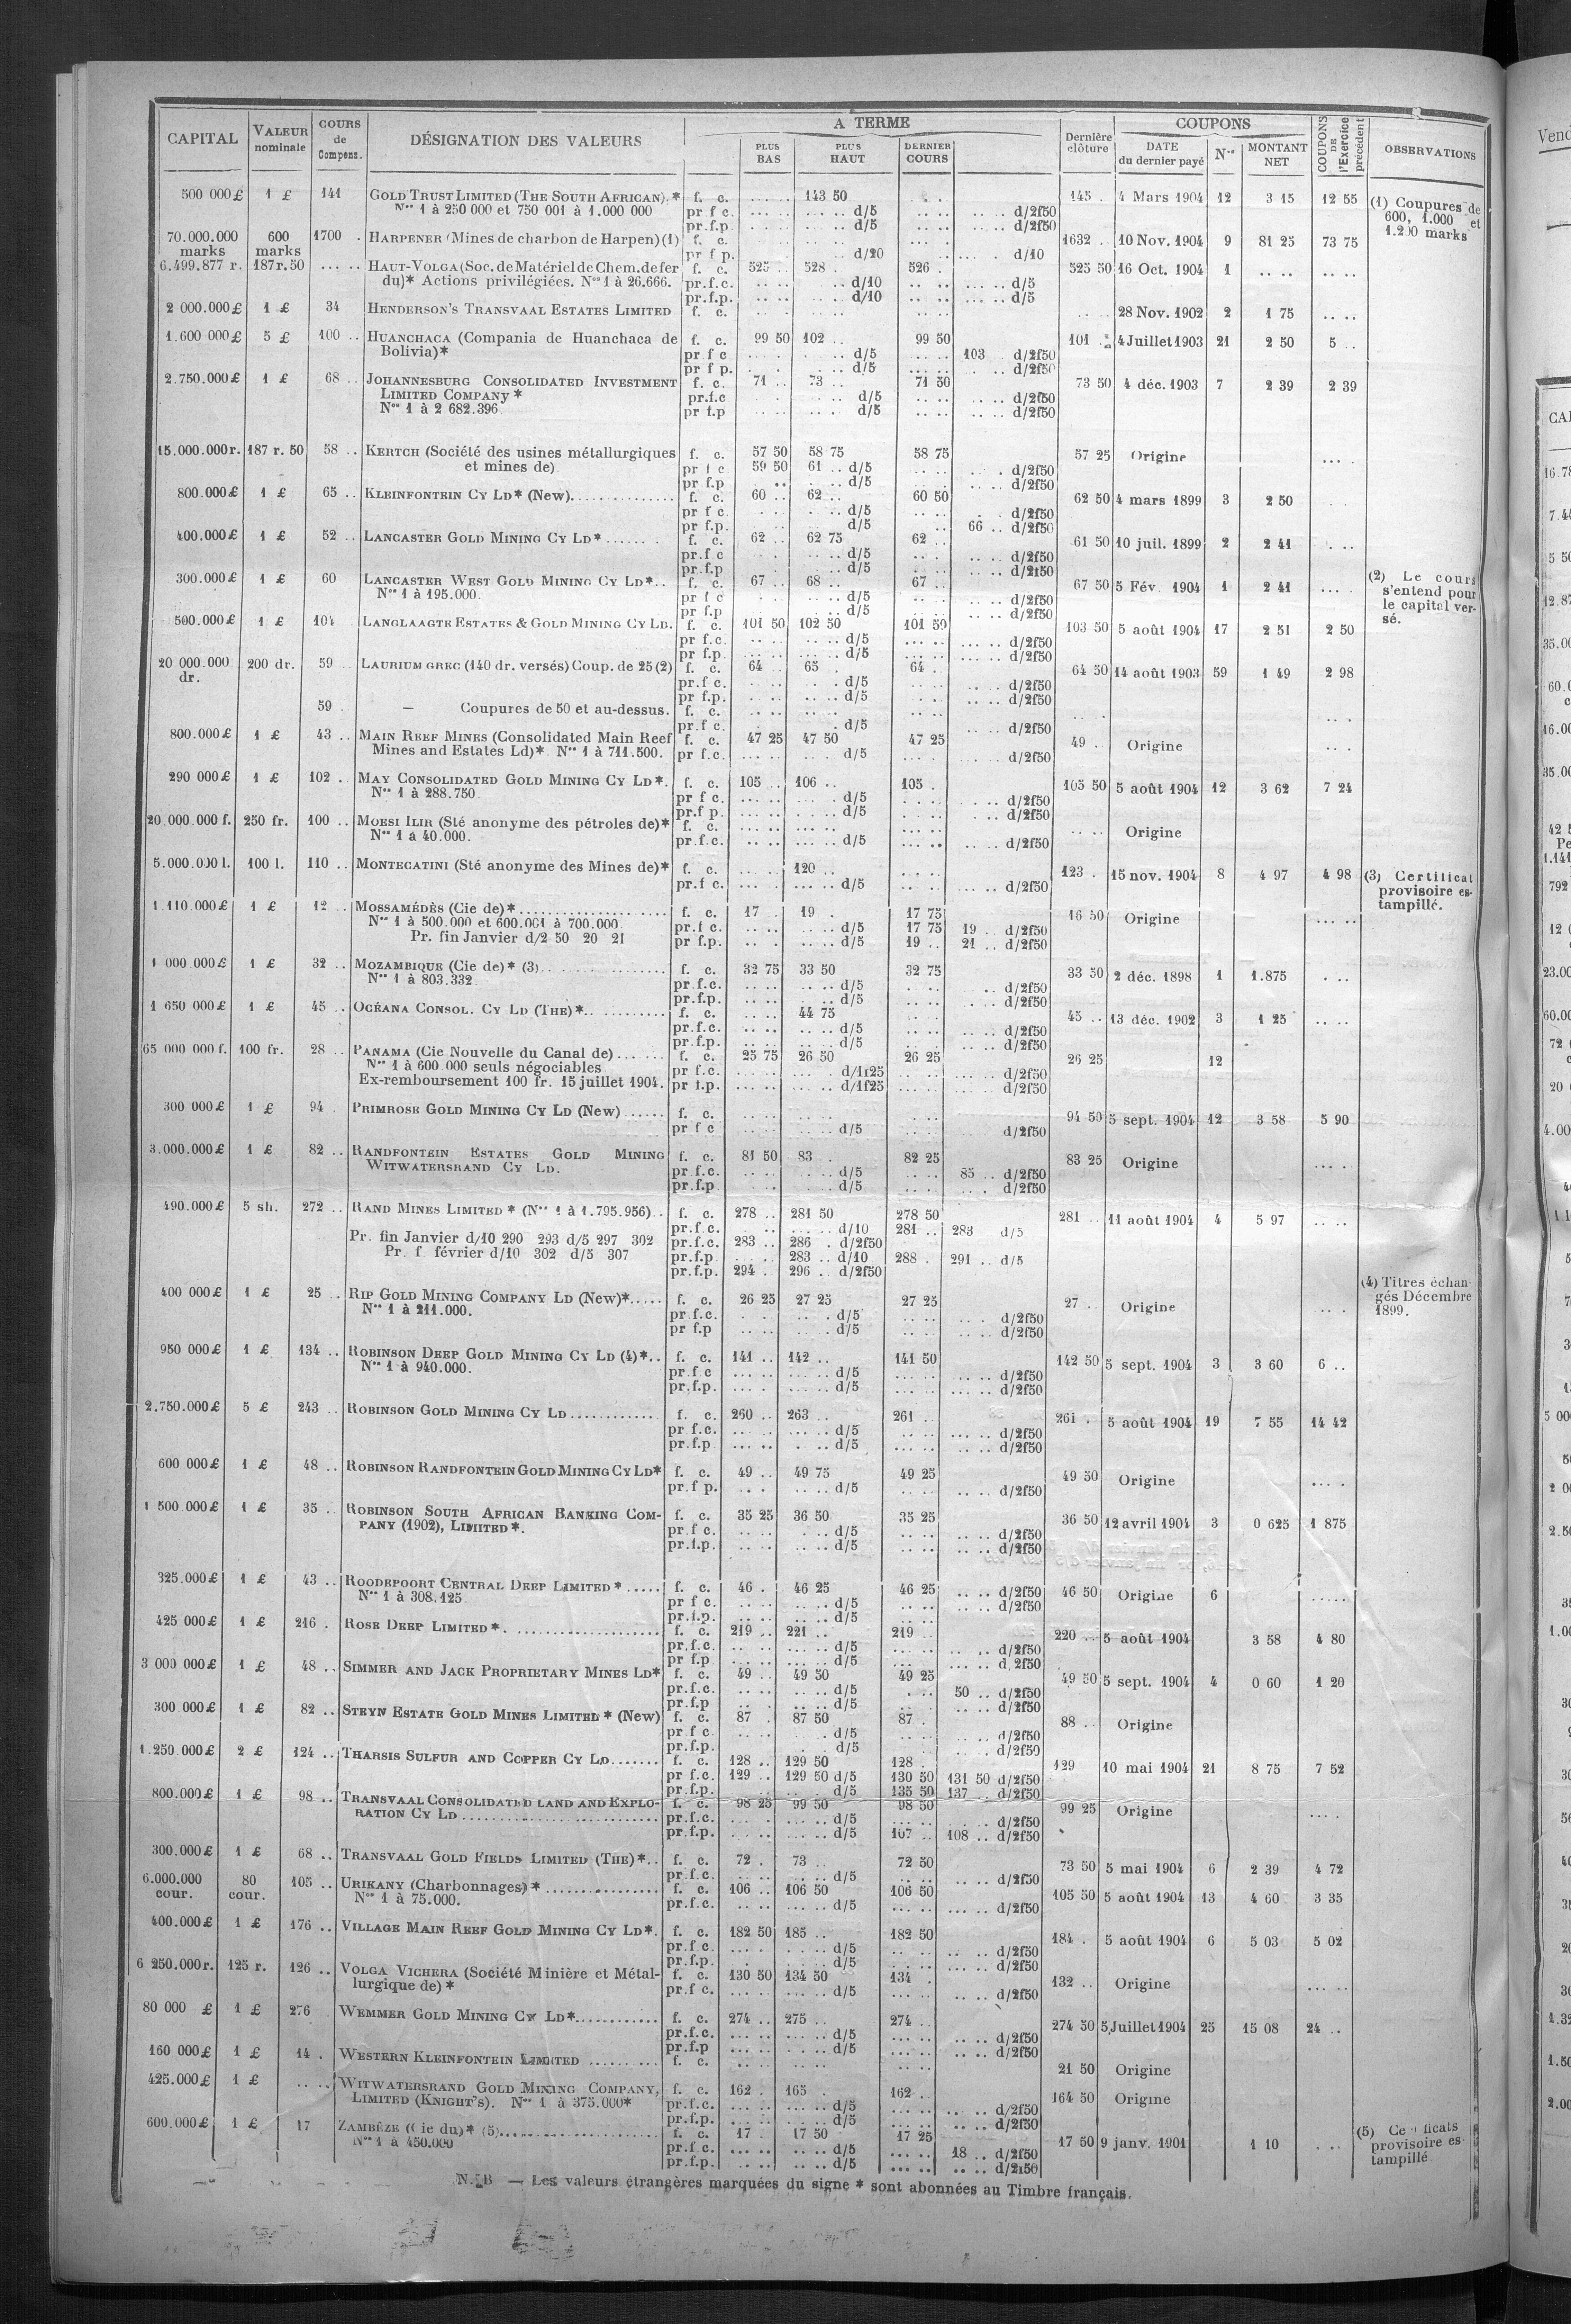 CAPITAL VALEUR nominale COURS de Compens. DÉSIGNATION DES VALEURS A TERME PLUS BAS PLUS HAUT DERNIER COURS Dernière clôture COUPONS DATE du dernier payé Nos MONTANT NET COUPONS DE l'Exercice précédent OBSERVATIONS
500 000 £ 1 £ 141 GOLD TRUST LIMITED (THE SOUTH AFRICAN).* f. c. 143 50 145 . 4 Mars 1904 12 3 15 12 55 (1) Coupures de
Nos 1 à 250 000 et 750 001 à 1.000 000 pr f c. d/5 d/2f50 600, 1.000 et
pr.f.p d/5 d/2f50 1.200 marks
70.000.000 marks 600 marks 1700 . HARPENER (Mines de charbon de Harpen) (1) f. c. 1632 .. 10 Nov. 1904 9 81 25 73 75
pr f p. d/20 d/10
6.499.877 r. 187 r. 50 HAUT-VOLGA (Soc. de Matériel de Chem. de fer f. c. 525 .. 528 . 526 . 525 50 16 Oct. 1904 1
du)* Actions privilégiées. Nos 1 à 26.666. pr.f.c. d/10 d/5
pr.f.p. d/10 d/5
2 000.000 £ 1 £ 34 HENDERSON'S TRANSVAAL ESTATES LIMITED f. c. 28 Nov. 1902 2 1 75
1.600 000 £ 5 £ 100 .. HUANCHACA (Compania de Huanchaca de f. c. 99 50 102 .. 99 50 101 4 Juillet 1903 21 2 50 5 ..
Bolivia)* pr f c d/5 103 d/2f50
pr f p. d/5 d/2f50
2.750.000 £ 1 £ 68 .. JOHANNESBURG CONSOLIDATED INVESTMENT f. c. 71 .. 73 .. 71 50 73 50 4 déc. 1903 7 2 39 2 39
LIMITED COMPANY * pr.f.c d/5 d/2f50
Nos 1 à 2 682.396 pr f.p d/5 d/2f50
15.000.000 r. 187 r. 50 58 .. KERTCH (Société des usines métallurgiques f. c. 57 50 58 75 58 75 57 25 Origine
et mines de) pr f c 59 50 61 .. d/5 d/2f50
pr f.p d/5 d/2f50
800.000 £ 1 £ 65 .. KLEINFONTEIN CY LD* (New) f. c. 60 .. 62 .. 60 50 62 50 4 mars 1899 3 2 50
pr f c d/5 d/2f50
pr f.p. d/5 66 .. d/2f50
400.000 £ 1 £ 52 .. LANCASTER GOLD MINING CY LD* f. c. 62 .. 62 75 62 .. 61 50 10 juil. 1899 2 2 41
pr.f c d/5 d/2f50
pr.f.p d/5 d/2f50
300.000 £ 1 £ 60 LANCASTER WEST GOLD MINING CY LD*.. f. c. 67 .. 68 .. 67 .. 67 50 5 Fév 1904 1 2 41 (2) Le cours
Nos 1 à 195.000. pr f c d/5 d/2f50 s'entend pour
pr f.p d/5 d/2f50 le capital ver-
500.000 £ 1 £ 104 LANGLAAGTE ESTATES & GOLD MINING CY LD. f. c. 101 50 102 50 101 50 103 50 5 août 1904 17 2 51 2 50 sé.
pr f.c. d/5 d/2f50
pr f.p. d/5 d/2f50
20 000.000 dr. 200 dr. 59 LAURIUM GREC (140 dr. versés) Coup. de 25 (2) f. c. 64 .. 65 . 64 .. 64 50 14 août 1903 59 1 49 2 98
pr.f c. d/5 d/2f50
pr f.p. d/5 d/2f50
59 . — Coupures de 50 et au-dessus. f. c.
pr.f c. d/5 d/2f50
800.000 £ 1 £ 43 .. MAIN REEF MINES (Consolidated Main Reef f. c. 47 25 47 50 47 25 49 . Origine
Mines and Estates Ld)* Nos 1 à 711.500. pr f.c. d/5 d/2f50
290 000 £ 1 £ 102 . MAY CONSOLIDATED GOLD MINING CY LD*. f. c. 105 .. 106 .. 105 . 105 50 5 août 1904 12 3 62 7 24
Nos 1 à 288.750 pr f c. d/5 d/2f50
pr.f p. d/5 d/2f50
20.000.000 f. 250 fr. 100 .. MOESI ILIR (Sté anonyme des pétroles de)* f. c. Origine
Nos 1 à 40.000. pr.f.c. d/5 d/2f50
5.000.000 l. 100 l. 110 .. MONTECATINI (Sté anonyme des Mines de)* f. c. 120 .. 123 . 15 nov. 1904 8 4 97 4 98 (3) Certificat
pr.f c. d/5 d/2f50 provisoire es-
tampillé.
1.110.000 £ 1 £ 12 .. MOSSAMÉDÈS (Cie de)* f. c. 17 . 19 . 17 75 16 50 Origine
Nos 1 à 500.000 et 600.001 à 700.000. pr.f c. d/5 17 75 19 .. d/2f50
Pr. fin Janvier d/2 50 20 21 pr f.p. d/5 19 .. 21 .. d/2f50
1 000 000 £ 1 £ 32 .. MOZAMBIQUE (Cie de)* (3) f. c. 32 75 33 50 32 75 33 50 2 déc. 1898 1 1.875
Nos 1 à 803.332 pr.f.c. d/5 d/2f50
pr.f.p. d/5 d/2f50
1 650 000 £ 1 £ 45 .. OCÉANA CONSOL. CY LD (THE)* f. c. 44 75 45 .. 13 déc. 1902 3 1 25
pr.f.c. d/5 d/2f50
pr.f.p. d/5 d/2f50
65 000 000 f. 100 fr. 28 .. PANAMA (Cie Nouvelle du Canal de) f. c. 25 75 26 50 26 25 26 25 12
Nos 1 à 600 000 seuls négociables pr f.c. d/1f25 d/2f50
Ex-remboursement 100 fr. 15 juillet 1904. pr f.p. d/1f25 d/2f50
300 000 £ 1 £ 94 . PRIMROSE GOLD MINING CY LD (New) f. c. 94 50 5 sept. 1904 12 3 58 5 90
pr f c d/5 d/2f50
3.000.000 £ 1 £ 82 .. RANDFONTEIN ESTATES GOLD MINING f. c. 81 50 83 . 82 25 83 25 Origine
WITWATERSRAND CY LD. pr f.c. d/5 85 .. d/2f50
pr.f.p d/5 d/2f50
490.000 £ 5 sh. 272 .. RAND MINES LIMITED * (Nos 1 à 1.795.956) f. c. 278 .. 281 50 278 50 281 .. 11 août 1904 4 5 97
pr.f c. d/10 281 .. 283 d/5
Pr. fin Janvier d/10 290 293 d/5 297 302 pr.f.c. 283 .. 286 . d/2f50
Pr. f février d/10 302 d/5 307 pr.f.p 283 .. d/10 288 . 291 .. d/5
pr.f.p. 294 .. 296 . d/2f50
400 000 £ 1 £ 25 .. RIP GOLD MINING COMPANY LD (New)* f. c. 26 25 27 25 27 25 27 .. Origine (4) Titres échan-
Nos 1 à 211.000. pr f.c. d/5 d/2f50 gés Décembre
pr f.p d/5 d/2f50 1899.
950 000 £ 1 £ 134 .. ROBINSON DEEP GOLD MINING CY LD (4)*.. f. c. 141 .. 142 .. 141 50 142 50 5 sept. 1904 3 3 60 6 ..
Nos 1 à 940.000. pr.f c d/5 d/2f50
pr.f.p. d/5 d/2f50
2.750.000 £ 5 £ 243 .. ROBINSON GOLD MINING CY LD f. c. 260 .. 263 .. 261 . 261 . 5 août 1904 19 7 55 14 42
pr f.c. d/5 d/2f50
pr.f.p d/5 d/2f50
600 000 £ 1 £ 48 .. ROBINSON RANDFONTEIN GOLD MINING CY LD* f. c. 49 .. 49 75 49 25 49 50 Origine
pr.f p. d/5 d/2f50
1 500 000 £ 1 £ 35 . ROBINSON SOUTH AFRICAN BANKING COM- f. c. 35 25 36 50 35 25 36 50 12 avril 1904 3 0 625 1 875
PANY (1902), LIMITED *. pr.f c. d/5 d/2f50
pr.f.p. d/5 d/2f50
325.000 £ 1 £ 43 .. ROODEPOORT CENTRAL DEEP LIMITED * f. c. 46 . 46 25 46 25 d/2f50 46 50 Origine 6
Nos 1 à 308.125 pr f c. d/5 d/2f50
pr.f.p. d/5
425 000 £ 1 £ 216 . ROSE DEEP LIMITED * f. c. 219 .. 221 .. 219 .. 220 .. 5 août 1904 3 58 4 80
pr.f.c. d/5 d/2f50
pr f.p d/5 d/2f50
3 000 000 £ 1 £ 48 .. SIMMER AND JACK PROPRIETARY MINES LD* f. c. 49 .. 49 50 49 25 49 50 5 sept. 1904 4 0 60 1 20
pr.f.c. d/5 50 .. d/2f50
pr.f.p d/5 d/2f50
300 000 £ 1 £ 82 .. STEYN ESTATE GOLD MINES LIMITED * (New) f. c. 87 . 87 50 87 . 88 .. Origine
pr f c d/5 d/2f50
pr.f.p. d/5 d/2f50
1.250 000 £ 2 £ 124 .. THARSIS SULFUR AND COPPER CY LD f. c. 128 .. 129 50 128 . 129 10 mai 1904 21 8 75 7 52
pr f.c. 129 .. 129 50 d/5 130 50 131 50 d/2f50
pr.f.p. d/5 135 50 137 .. d/2f50
800.000 £ 1 £ 98 .. TRANSVAAL CONSOLIDATED LAND AND EXPLO- f. c. 98 25 99 50 98 50 99 25 Origine
RATION CY LD pr.f.c. d/5 d/2f50
pr.f.p. d/5 107 .. 108 .. d/2f50
300.000 £ 1 £ 68 .. TRANSVAAL GOLD FIELDS LIMITED (THE)*.. f. c. 72 . 73 .. 72 50 73 50 5 mai 1904 6 2 39 4 72
pr.f.c. d/5 d/2f50
6.000.000 cour. 80 cour. 105 .. URIKANY (Charbonnages) * f. c. 106 .. 106 50 106 50 105 50 5 août 1904 13 4 60 3 35
Nos 1 à 75.000. pr.f.c. d/5 d/2f50
400.000 £ 1 £ 176 .. VILLAGE MAIN REEF GOLD MINING CY LD*. f. c. 182 50 185 .. 182 50 184 . 5 août 1904 6 5 03 5 02
pr.f c. d/5 d/2f50
pr.f.p. d/5 d/2f50
6 250.000 r. 125 r. 126 .. VOLGA VICHERA (Société Minière et Métal- f. c. 130 50 134 50 134 . 132 .. Origine
lurgique de) * pr.f c. d/5 d/2f50
80 000 £ 1 £ 276 WEMMER GOLD MINING CY LD* f. c. 274 .. 275 .. 274 .. 274 50 5 Juillet 1904 25 15 08 24 ..
pr.f.c. d/5 d/2f50
pr.f.p d/5 d/2f50
160 000 £ 1 £ 14 . WESTERN KLEINFONTEIN LIMITED f. c. 21 50 Origine
425.000 £ 1 £ WITWATERSRAND GOLD MINING COMPANY, f. c. 162 . 165 . 162 .. 164 50 Origine
LIMITED (KNIGHT'S). Nos 1 à 375.000* pr.f.c. d/5 d/2f50
pr.f.p. d/5 d/2f50
600.000 £ 1 £ 17 ZAMBÈZE (Cie du)* (5) f. c. 17 . 17 50 17 25 17 50 9 janv. 1901 1 10 (5) Ce ficats
Nos 1 à 450.000 pr.f.c. d/5 18 .. d/2f50 provisoire es-
pr.f.p. d/5 d/2f50 tampillé
N. B — Les valeurs étrangères marquées du signe * sont abonnées au Timbre français.